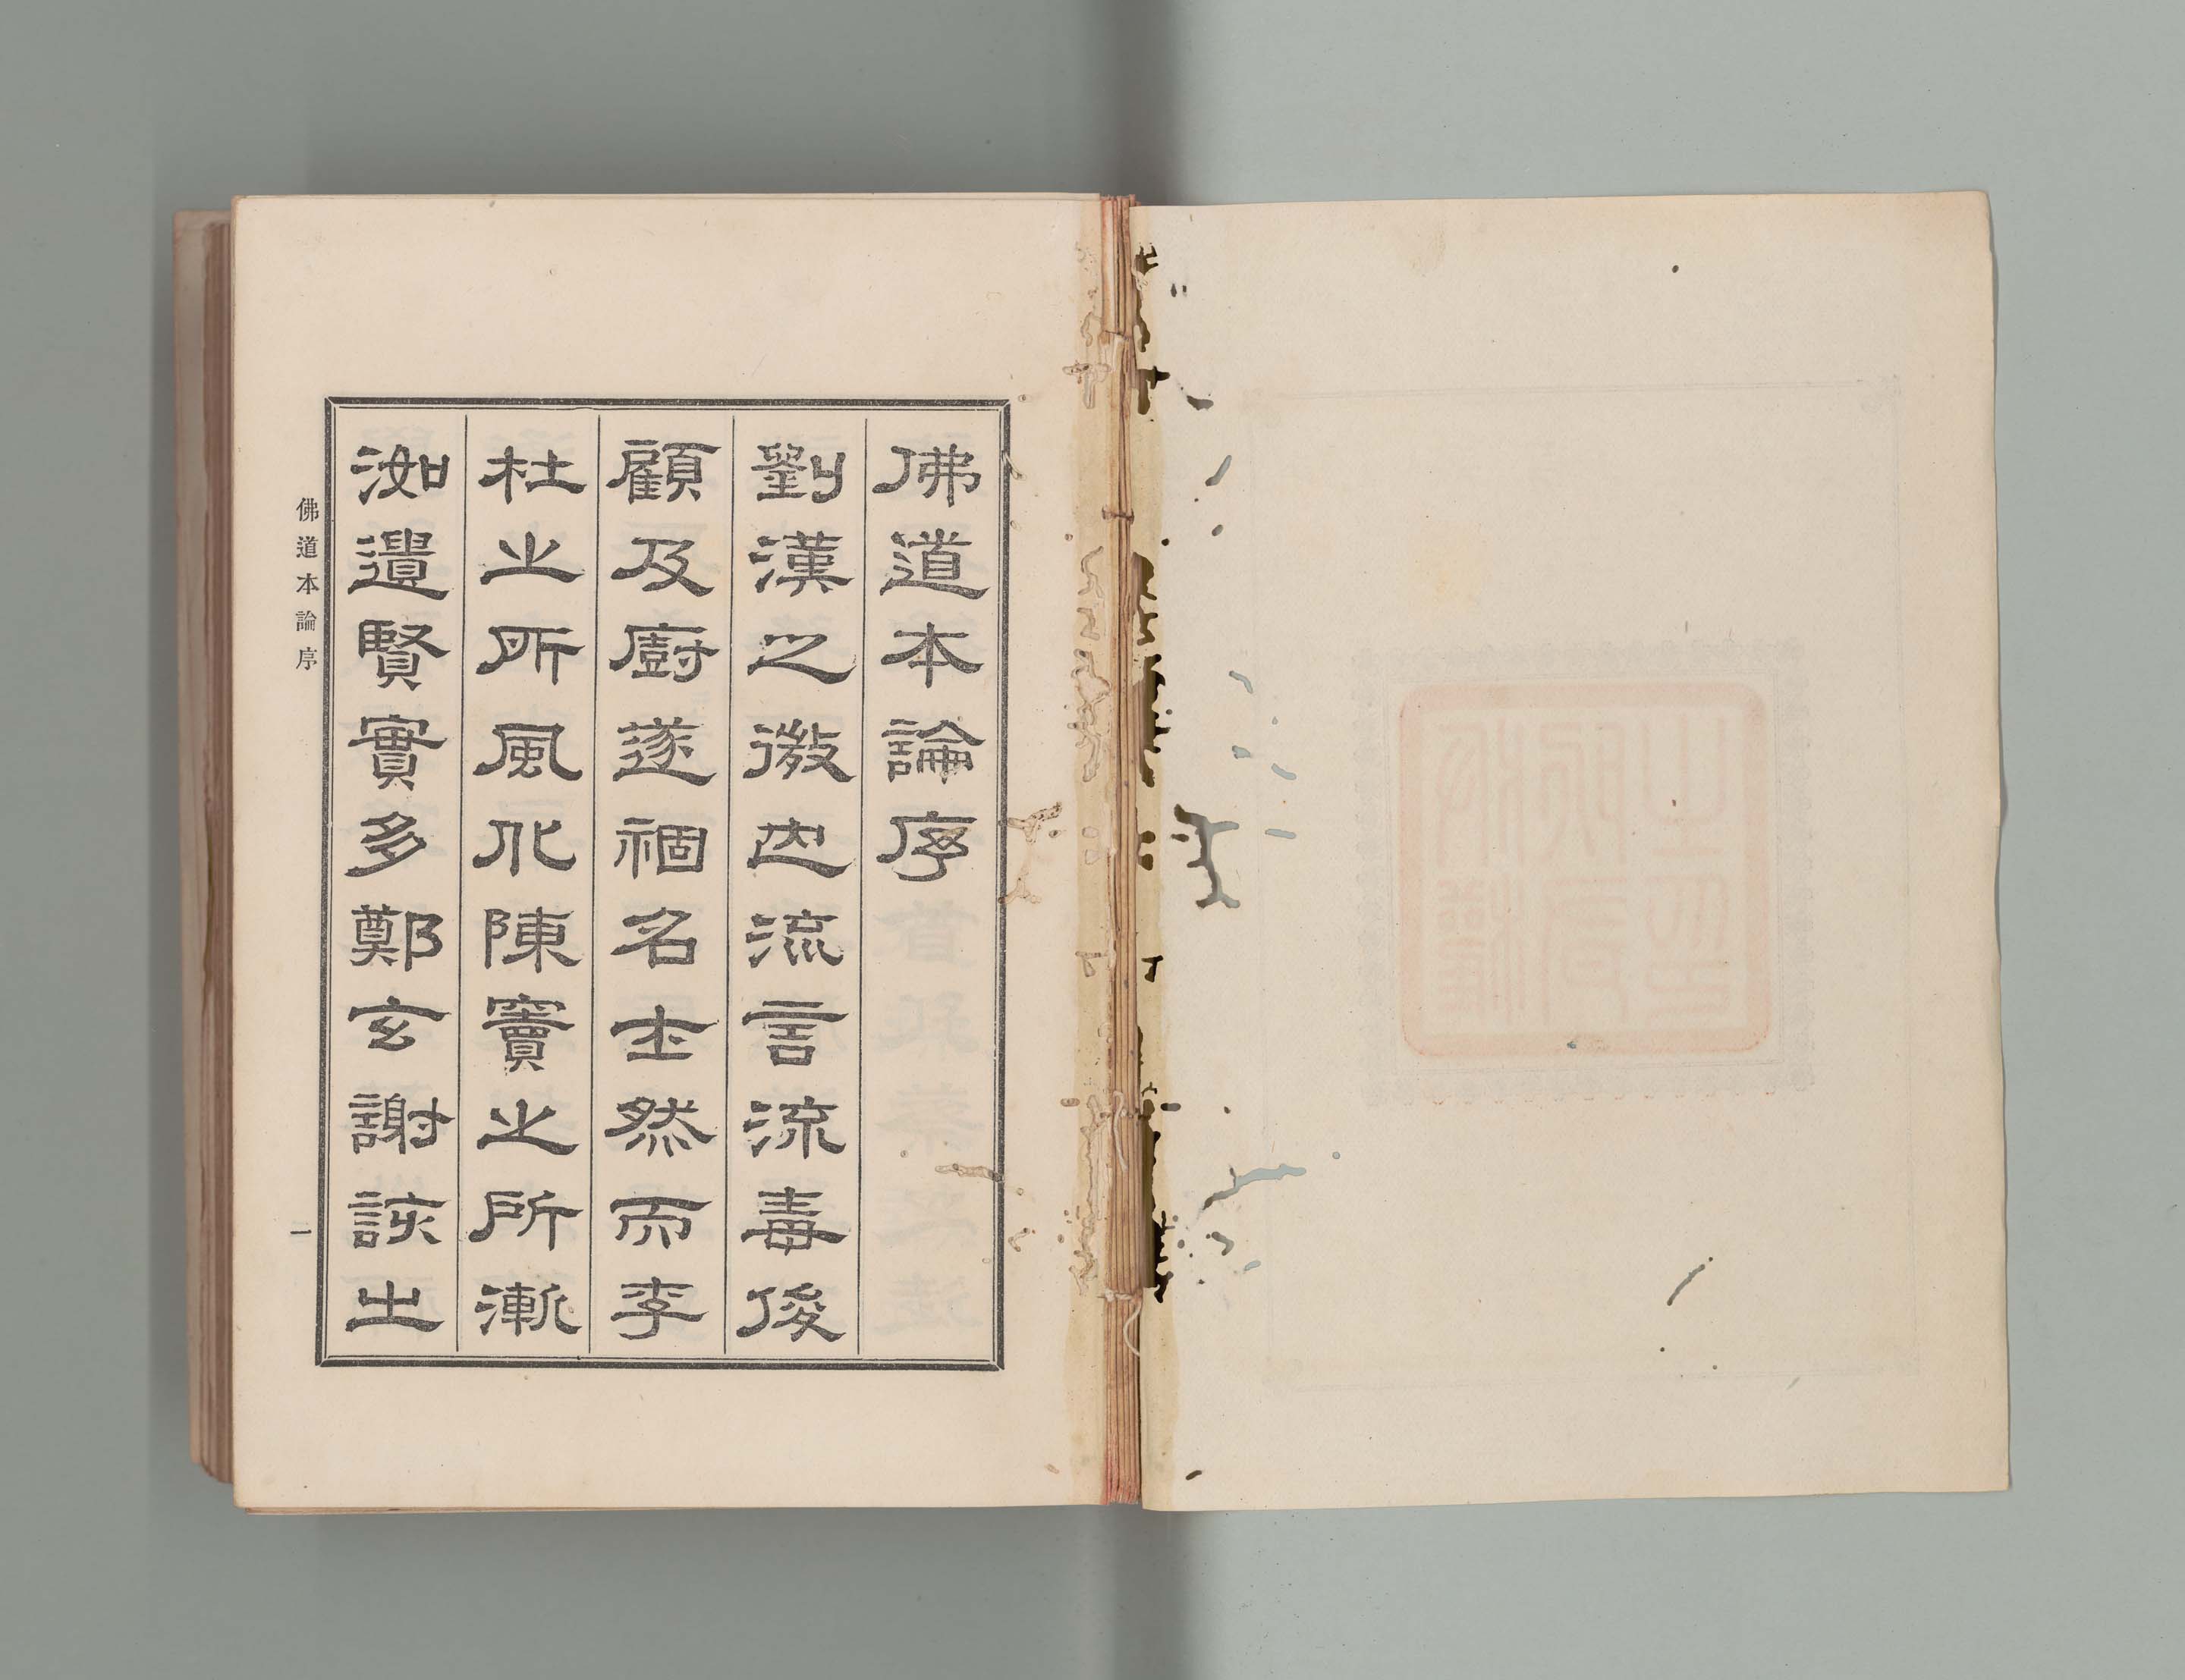 佛道本論序
劉漢之微也流言流毒俊
顧及廚遂祻名士然而李
杜之所風化陳竇之所漸
洳遺賢實多鄭玄謝該出
佛道本論序 一